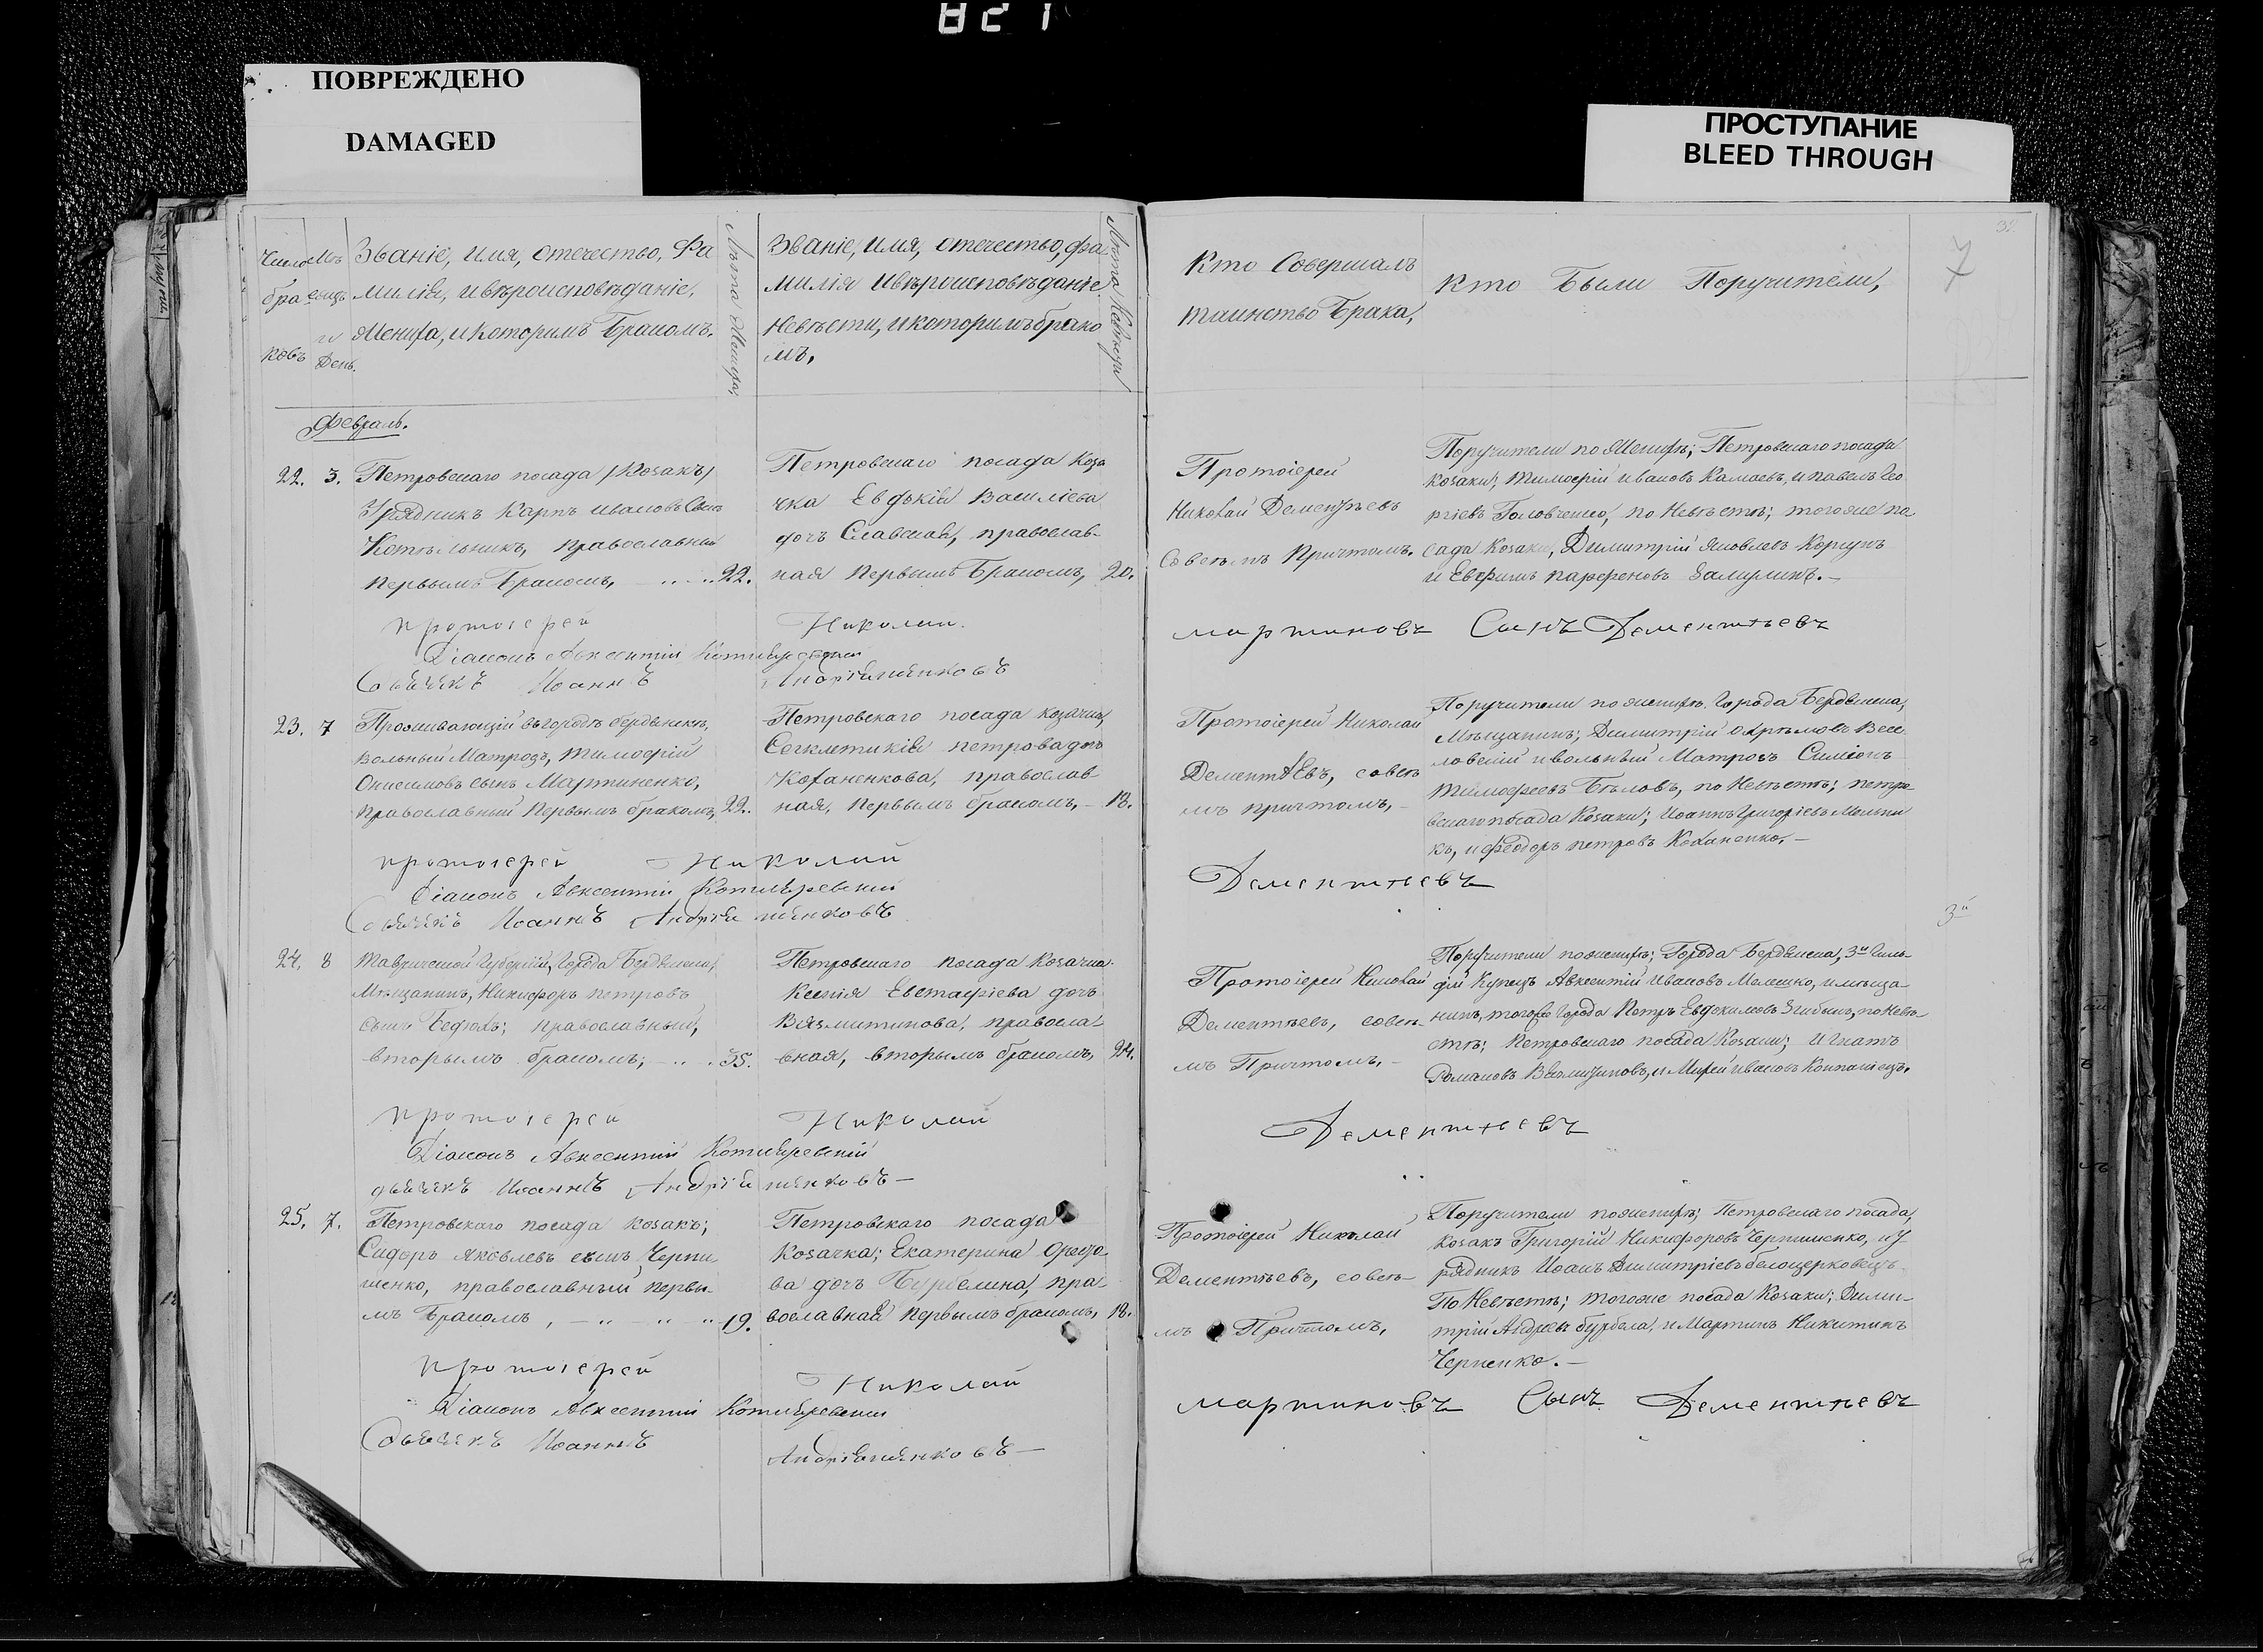 821
ПОВРЕЖДЕНО
DAMAGED
ПРОСТУПАНИЕ
BLEED THROUGH
Число Мѣ
бра сяцъ
и
ковъ День.
Званіе, имя, отечество, Фа
милія, ивѣроисповѣданіе,
Жениха, икоторимъ Бракомъ.
Лѣта Жениха,
Званіе, имя, отечество, фа
милія ивѣроисповѣданіе
Невѣсти, икоторимъ брако
мъ,
Лѣта Невѣсти
Кто Совершалъ
таинство Брака,
Кто Были Поручители,
7
Февраль.
22. 3. Петровскаго посада /Козакъ/
Урядникъ Карпъ ивановъ Сынъ
Котѣльникъ, православный
первымъ Бракомъ, 22.
Петровскаго посада Коза
чка Евдокія Василіева
дочь Славская, православ-
ная первымъ Бракомъ, 20.
Протоіерей
Николай Дементьевъ
Совсѣмъ Причтомъ.
Поручители по Женихѣ; Петровскаго посада
козаки; тимофій ивановъ Камаевъ, и павелъ Гео
ргіевъ Головченко, по Невѣсте; тогоже по
сада козаки, Димитрій Яковлевъ Коргунъ
и Евфимъ парфеновъ Замулинъ.-
протоіерей Николай.
мартиновъ Сынъ Дементьевъ
Діаконъ Авксентій Котляревскій
дьячекъ Иоаннъ Андріяшенковъ
23. 7 Проживающій въ городѣ бердянскѣ,
вольный Матрозъ, тимофій
Онисимовъ сынъ Мартиненко,
православный первымъ бракомъ, 22.
Петровскаго посада козачка
Секлетикія петрова дочь
Коханенкова, православ
ная, первымъ бракомъ, - 18.
Протоіерей Николай
Дементьевъ, совсѣ
мъ причтомъ, -
Поручители по женихѣ, Города Бердянска,
Мѣщанинъ; Димитрій охрѣмовъ Весе
ловскій и вольный Матрозъ Симіонъ
тимофеевъ Бѣловъ, по Невѣсте; петро
вскаго посада Козаки; Иоаннъ Григоріевъ Мельни
къ, и феодоръ петровъ Коханенко. -
протоіерей Николай
Дементьевъ
Діаконъ Авксентій Котляревскій
дьячекъ Иоаннъ Андріяшенковъ
3й
24. 8 таврической Губерній, Города Бердянска,
Мѣщанинъ, Никифоръ петровъ
сынъ Бедюхъ; православный,
вторымъ бракомъ; 35.
Петровскаго посада Козачка
Ксенія Евстафіева дочь
Вязмитинова, правосла-
вная, вторымъ бракомъ, 24.
Протоіерей Николай
Дементьевъ, совсѣ-
мъ Причтомъ, -
Поручители поженихѣ; Города Бердянска, 3й Гиль-
дій Купецъ Авксентій Ивановъ Мелешко, имѣща
нинъ, тогоже Города Петръ Евдокимовъ Згибынъ, по Невѣ-
сте; Петровскаго посада Козаки; Игнатъ
Романовъ Вязмитиновъ, и Мирей ивановъ Компаніецъ.
протоіерей Николай
Дементьевъ
Діаконъ Авксентій Котляревскій
дьячекъ Иоаннъ Андріяшенковъ -
25. 7. Петровскаго посада козакъ;
Сидоръ яковлевъ сынъ Черни
шенко, православный первы-
мъ Бракомъ, 19.
Петровскаго посада
Козачка; Екатерина
ва дочь пра-
вославная первымъ бракомъ, 18.
Протоіерей Николай
Дементьевъ, совсѣ-
мъ Причтомъ,
Поручители поженихѣ; Петровскаго посада,
козакъ Григорій Никифоровъ Чернишенко, и У
рядникъ Иоанъ Димитріевъ белоцерковецъ
По Невѣсте; тогоже посада Козаки; Дими-
трій Андреевъ бурбела, и Мартинъ Никитинъ
Черненко. -
протоіерей Николай
мартиновъ Сынъ Дементьевъ
Діаконъ Авксентій Котляревскій
дьячекъ Иоаннъ
Андріяшенковъ -